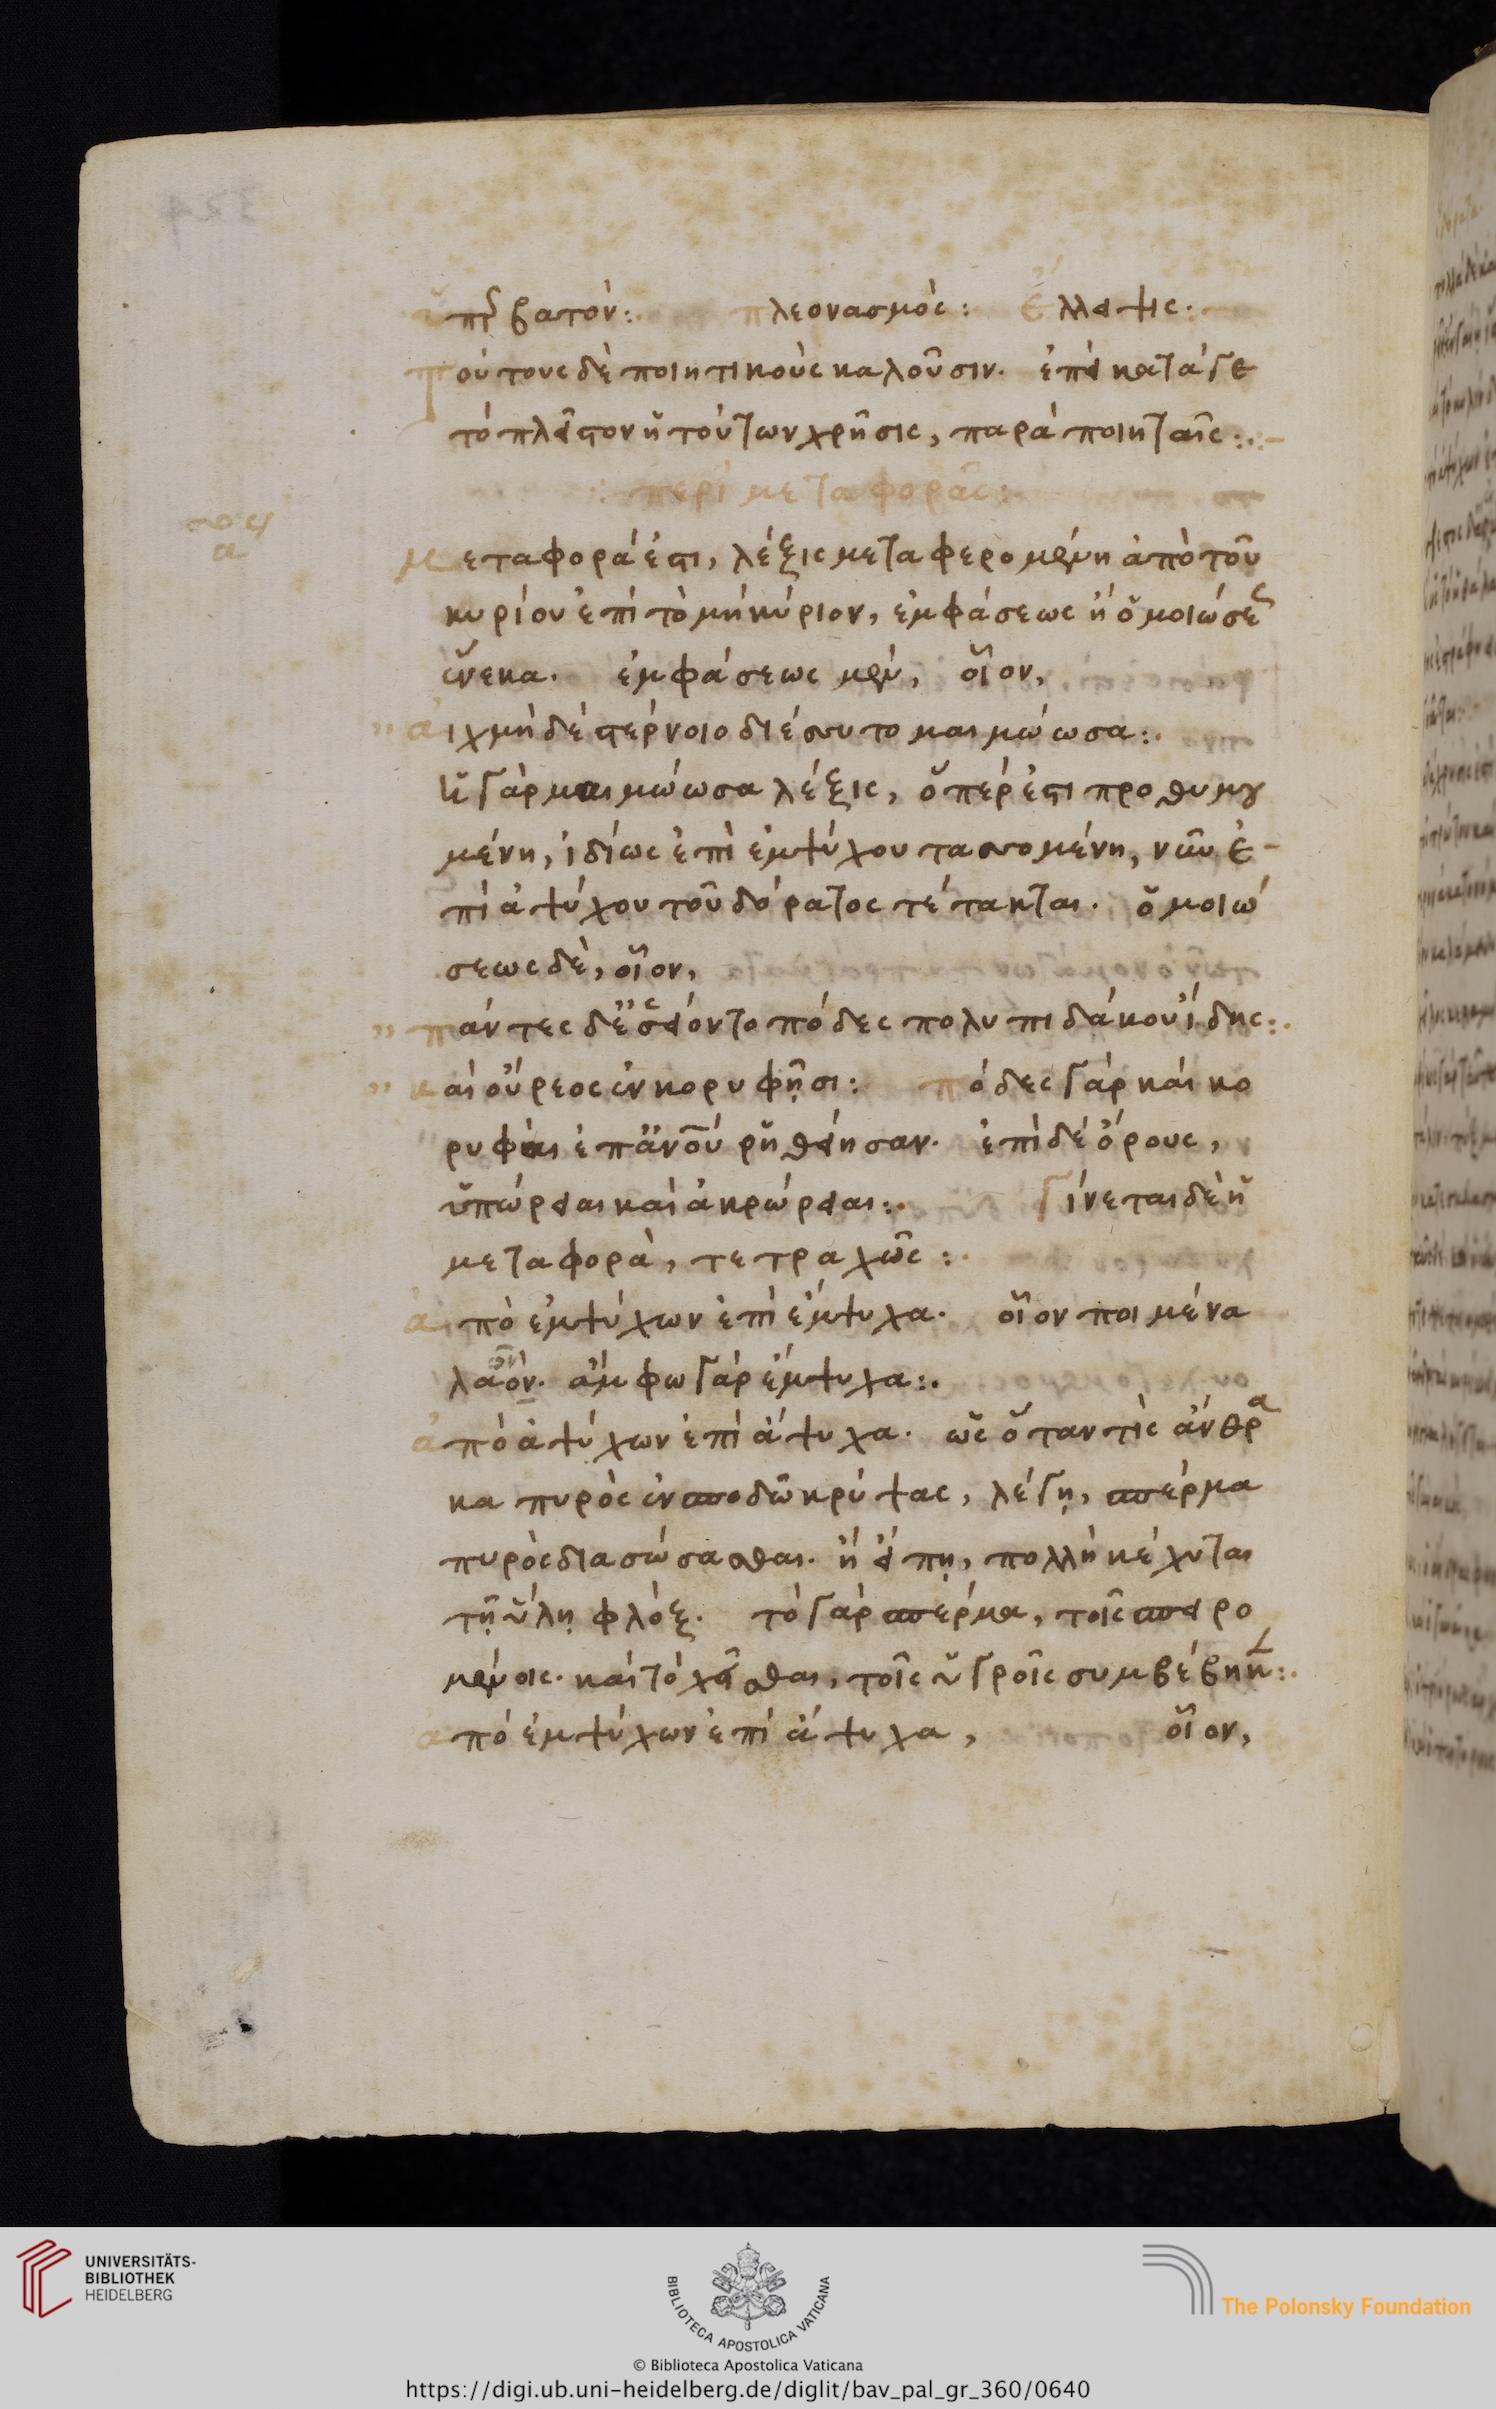 ὑπερβατόν:. πλεονασμός: ἔλλειψις.
τούτους δὲ ποιητικοὺς καλοῦσιν. ἐπεὶ κατά γε
τὸ πλεῖστον ἡ τούτων χρῆσις, παρὰ ποιηταῖς:.:-
: περὶ μεταφορᾶς:
μεταφορά ἐστι, λέξις μεταφερομένη ἀπὸ τοῦ
κυρίου ἐπὶ τὸ μὴ κύριον, ἐμφάσεως ἢ ὁμοιώσεως
ἕνεκα. ἐμφάσεως μέν, οἷον,
" αἰχμὴ δὲ στέρνοιο διέσσυτο μαιμώωσα:.
ἡ γὰρ μαιμώωσα λέξις, ὅπερ ἐστι προθυμου
μένη, ἰδίως ἐπὶ ἐμψύχου τασσομένη, νῦν ἐ-
πὶ ἀψύχου τοῦ δόρατος τέτακται. ὁμοιώ
σεως δὲ, οἷον,
" πάντες δ' ἐσσείοντο πόδες πολυπιδάκου ἴδης:.
" καὶ οὔρεος ἐν κορυφῆσι: πόδες γὰρ καὶ κο
ρυφαὶ ἐπ' ἀνοῦ ῥηθείησαν. ἐπὶ δὲ ὄρους,
ὑπώρειαι καὶ ἀκρώρειαι:. γίνεται δὲ ἡ
μεταφορὰ, τετραχῶς:.
ἀπὸ ἐμψύχων ἐπὶ ἔμψυχα. οἷον ποιμένα
λαὸν. ἄμφω γὰρ ἔμψυχα:.
ῶν
ἀπὸ ἀψύχων ἐπὶ ἄψυχα. ὡς ὅταν τὶς ἄνθρα
κα πυρὸς ἐν σποδῶ κρύψας, λέγῃ, σπέρμα
πυρὸς διασώσασθαι. ἢ εἴπῃ, πολλὴ κέχυται
τῇ ὕλῃ φλόξ. τὸ γὰρ σπέρμα, τοῖς σπειρο
μένοις. καὶ τὸ χεῖσθαι, τοῖς ὑγροῖς συμβέβηκεν:.
ἀπὸ ἐμψύχων ἐπὶ ἄψυχα, οἷον,
UNIVERSITÄTS-
BIBLIOTHEK
HEIDELBERG
BIBLIOTECA APOSTOLICA VATICANA
The Polonsky Foundation
© Biblioteca Apostolica Vaticana
https://digi.ub.uni-heidelberg.de/diglit/bav_pal_gr_360/0640